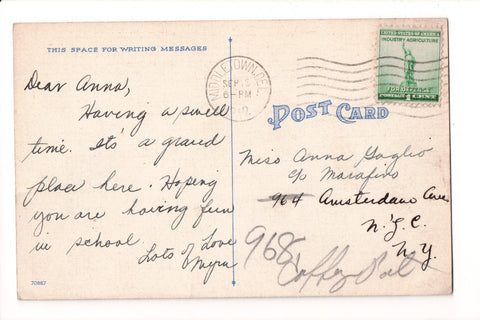 THIS SPACE FOR WRITING MESSAGES
UNITED STATES OF AMERICA
INDUSTRY AGRICULTURE
FOR DEFENSE
CENT
MIDDLETOWN, DEL.
SEP 5
PM
POST CARD
Dear Anna,
Having a swell
time. It's a grand
place here. Hoping
you are having fun
in school.
Lots of Love
Myra
Miss Anna Gaglio
c/o Marafino
964 Amsterdam Ave
N.Y.C.
N.Y.
968
70887